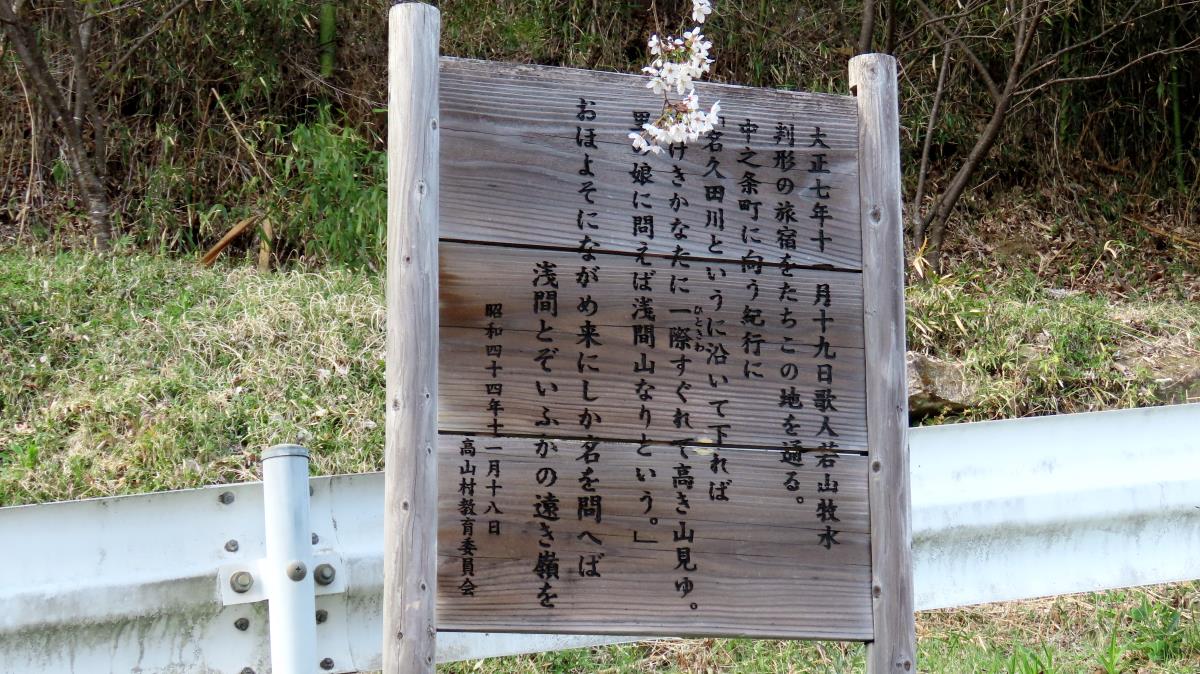 大正七年十一月十九日歌人若山牧水
判形の旅宿をたちこの地を通る。
中之条町に向う紀行に
名久田川というに沿いて下れば
けきかなたに一際すぐれて高き山見ゆ。
娘に問えば浅間山なりという。」
おほよそにながめ来にしか名を問へば
浅間とぞいふかの遠き嶺を
昭和四十四年十一月十八日
高山村教育委員会